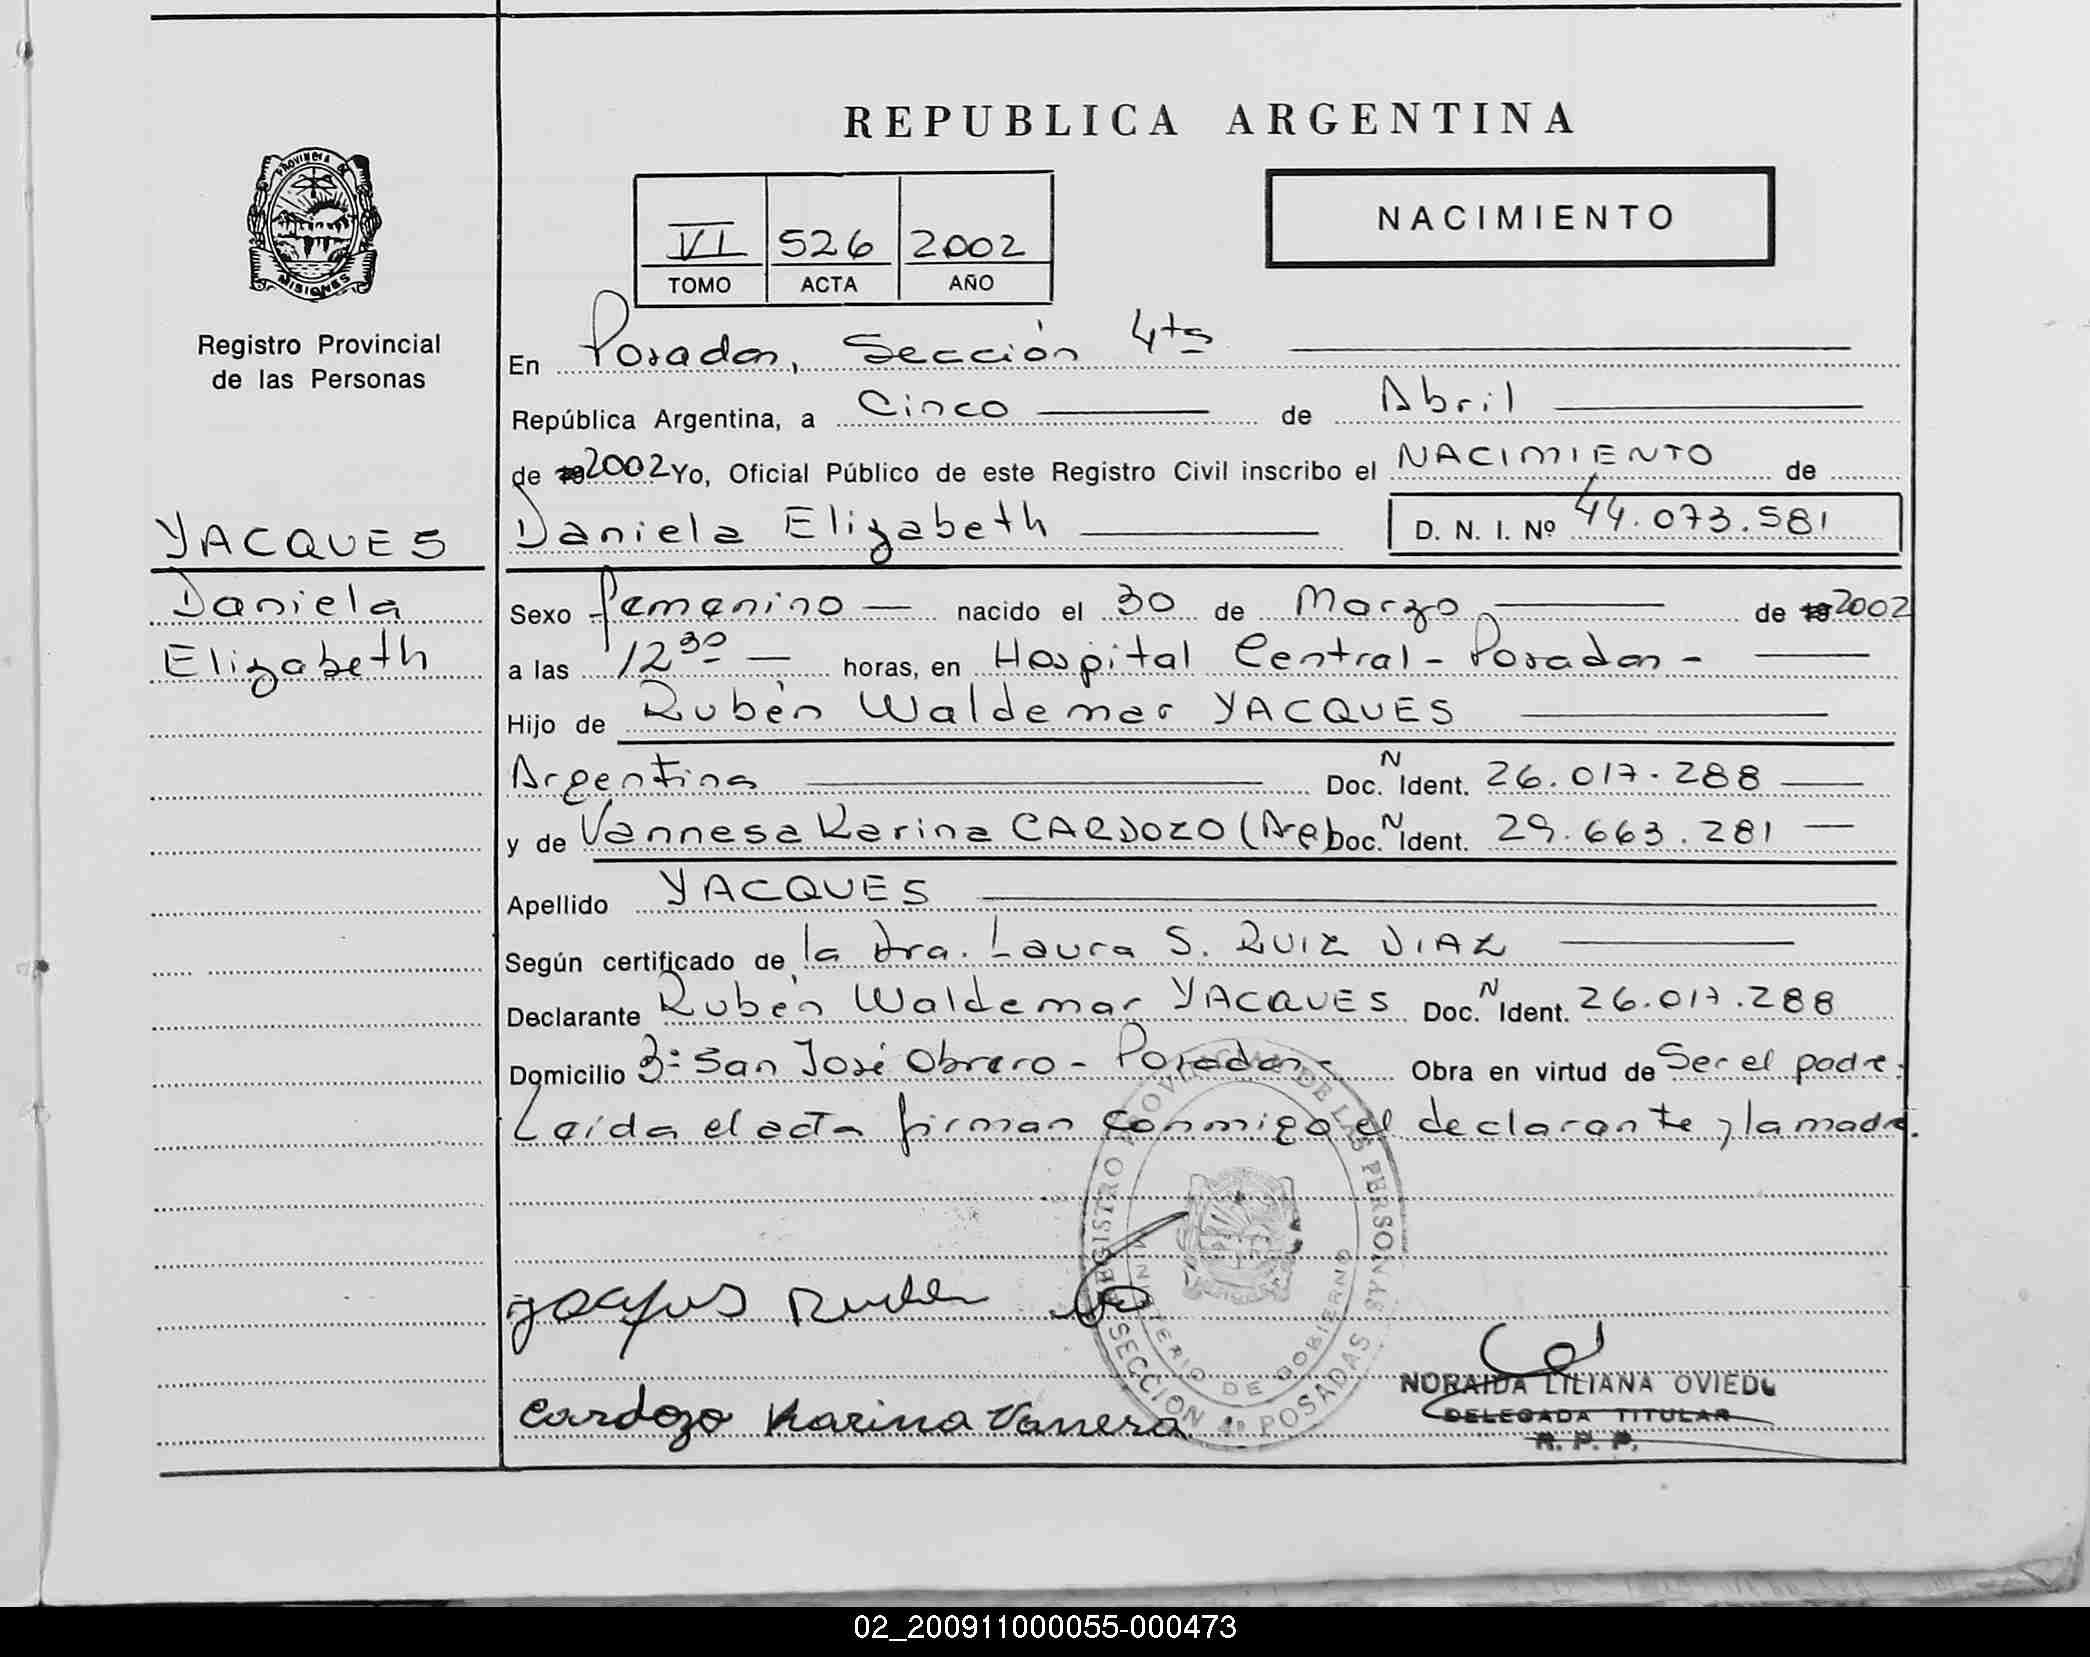 REPUBLICA ARGENTINA
PROVINCIA DE
MISIONES
Registro Provincial
de las Personas
VI 526 2002
TOMO ACTA AÑO
NACIMIENTO
En Posadas, Sección 4ta
República Argentina, a Cinco de Abril
de 19 2002 Yo, Oficial Público de este Registro Civil inscribo el NACIMIENTO de
YACQUES
Daniela
Elizabeth
Daniela Elizabeth D. N. I. Nº 44.073.581
Sexo femenino nacido el 30 de Marzo de 19 2002
a las 12 30 horas, en Hospital Central - Posadas -
Hijo de Rubén Waldemar YACQUES
Argentina Doc. N Ident. 26.017.288
y de Vannesa Karina CARDOZO (Arg) Doc. N Ident. 29.663.281
Apellido YACQUES
Según certificado de la dra. Laura S. RUIZ DIAZ
Declarante Rubén Waldemar YACQUES Doc. N Ident. 26.017.288
Domicilio Bº San José Obrero - Posadas - Obra en virtud de Ser el padre.
Leída el acta firman conmigo el declarante y la madre.
REGISTRO PROVINCIAL DE LAS PERSONAS
MINISTERIO DE GOBIERNO
SECCION 4º POSADAS
Yacques Ruben
Cardozo Karina Vanesa
NORAIDA LILIANA OVIEDO
DELEGADA TITULAR
R. P. P.
02_200911000055-000473